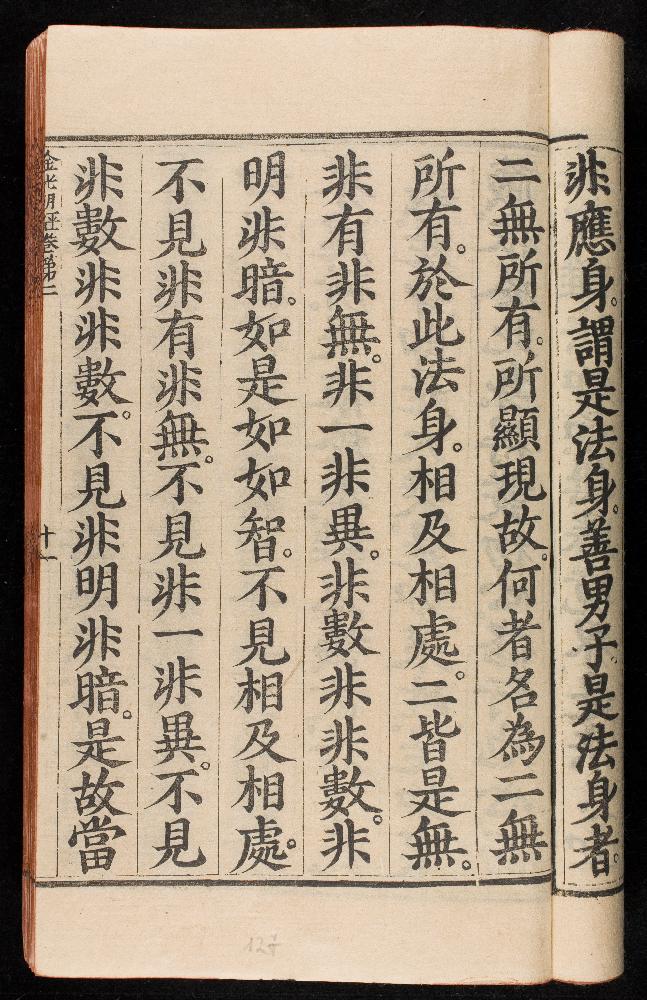 非應身。謂是法身。善男子。是法身者。
二無所有。所顯現故。何者名為二無
所有。於此法身。相及相處。二皆是無。
非有非無。非一非異。非數非非數。非
明非暗。如是如如智。不見相及相處。
不見非有非無。不見非一非異。不見
非數非非數。不見非明非暗。是故當
金光明經卷第二
十一
124